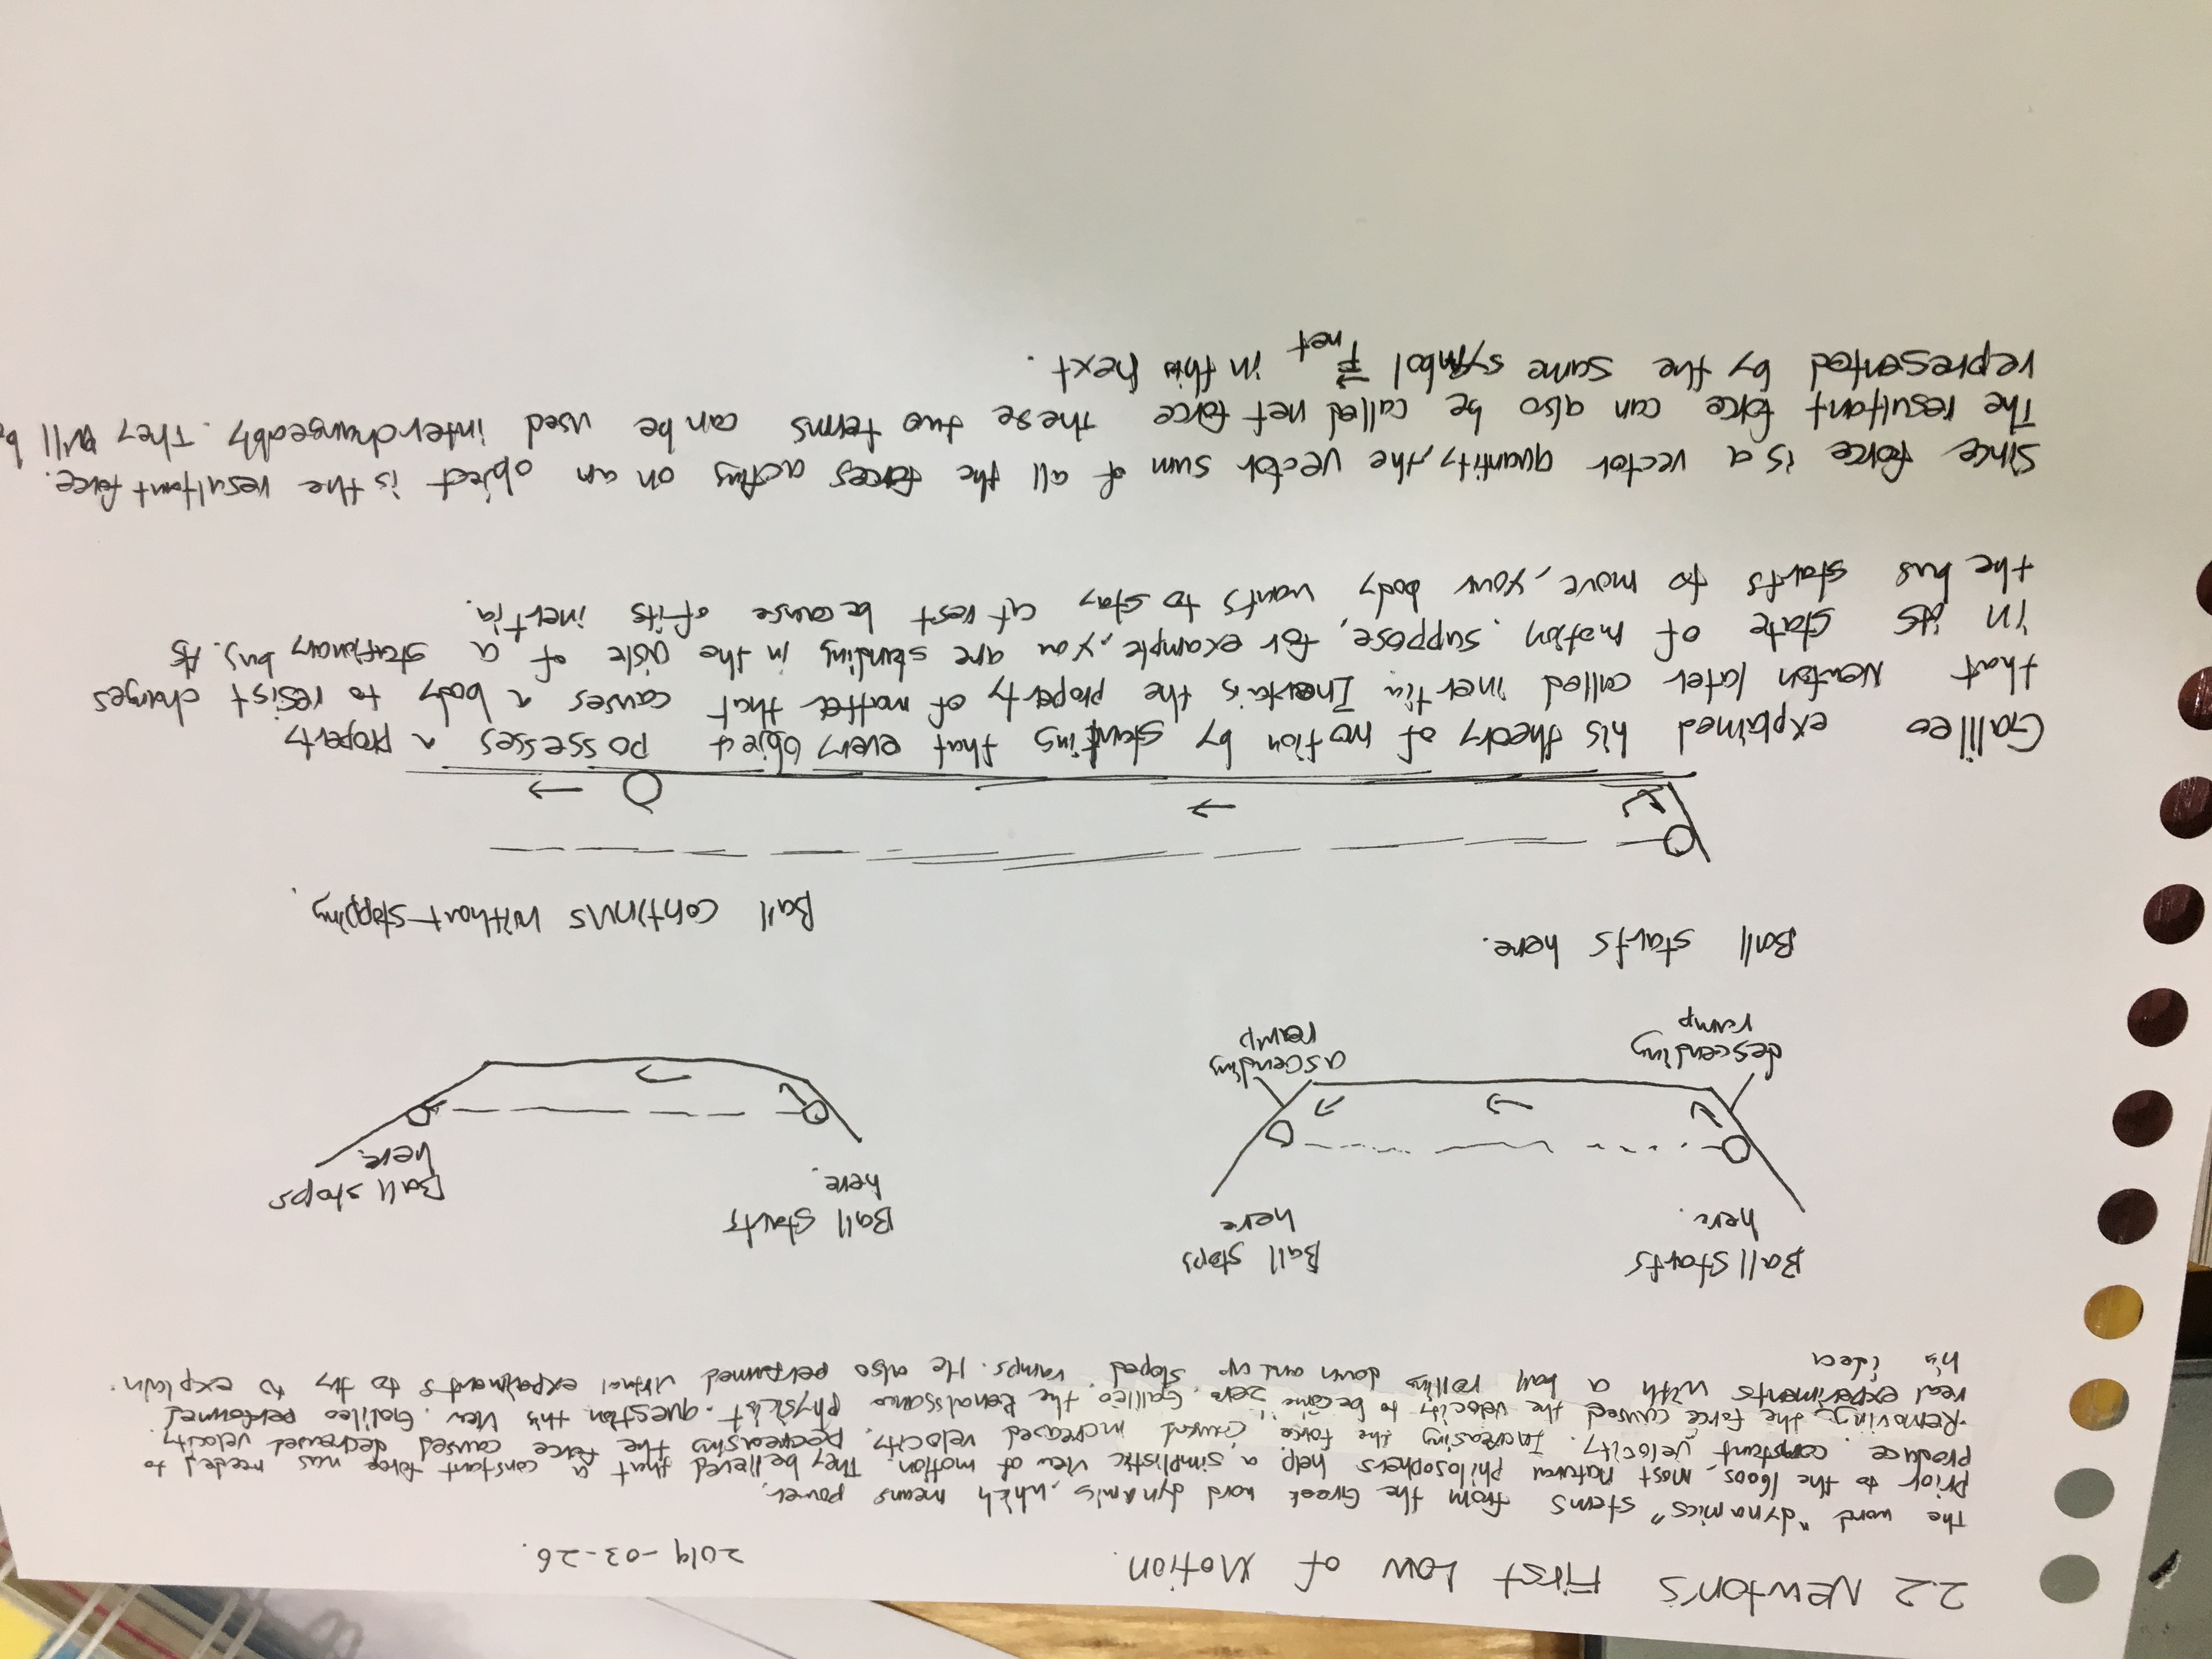 2.2 Newton's First Law of Motion. 2019-03-26.
The word "dynamics" stems from the Greek word dynamis, which means power.
Prior to the 1600s, most natural philosophers help a simplistic view of motion. They believed that a constant force was needed to
produce constant velocity. Increasing the force caused increased velocity, Decreasing the force caused decreased velocity.
Removing the force caused the velocity to become zero. Galileo, the Renaissance physicist question this view. Galileo performed
real experiments with a ball rolling down and up sloped ramps. He also performed virtual experiments to try to explain
his idea
Ball starts here. Ball stops here Ball starts here. Ball stops here.
descending ramp ascending ramp
Ball starts here. Ball continus without stopping.
Galileo explained his theory of motion by stanting that every object possesses a property
that Newton later called inertia Inertia is the property of matter that causes a body to resist changes
in its state of motion. suppose, for example, you are standing in the aisle of a stationary bus. As
the bus starts to move, your body wants to stay at rest because of its inertia.
Since force is a vector quantity, the vector sum of all the forces acting on an object is the resultant force.
The resultant force can also be called net force these two terms can be used interchangeably. They will
represented by the same symbol F⃗net in this text.